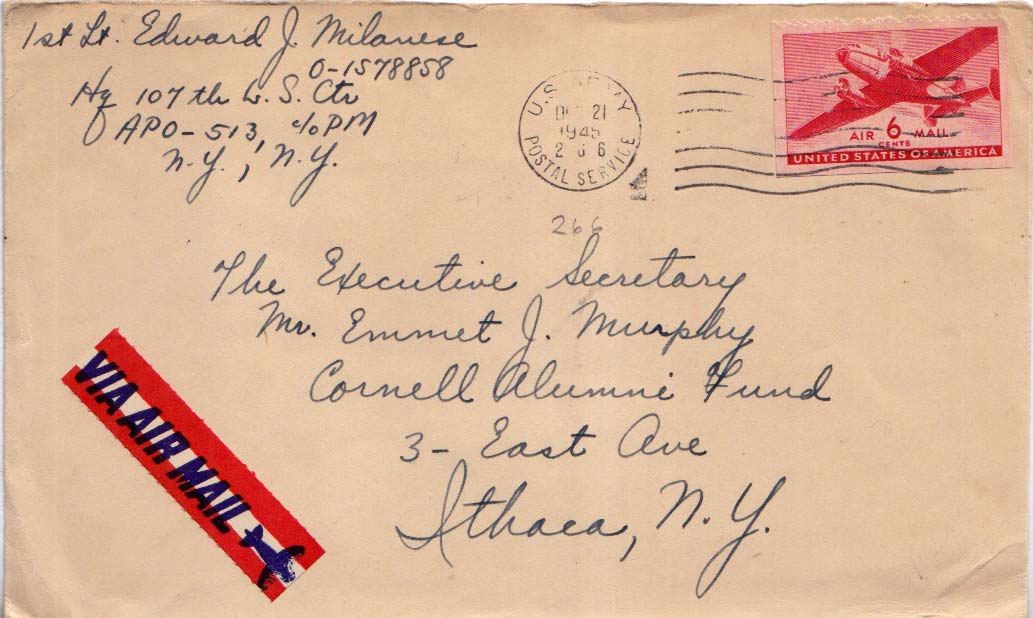 1st Lt. Edward J. Milanese
O-1578858
Hq 107th L. S. Ctr
APO-513, c/o PM
N.Y., N.Y.
U.S. ARMY
21
1945
POSTAL SERVICE
AIR 6 MAIL
CENTS
UNITED STATES OF AMERICA
266
The Executive Secretary
Mr. Emmet J. Murphy
Cornell Alumni Fund
3- East Ave
Ithaca, N.Y.
VIA AIR MAIL